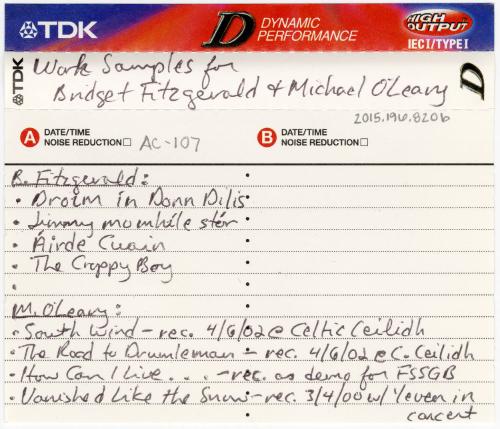 TDK
D DYNAMIC PERFORMANCE
HIGH OUTPUT
IEC I/TYPE I
TDK
D
Work Samples for
Bridget Fitzgerald & Michael O'Leary
2015.196.8206
A DATE/TIME
NOISE REDUCTION
AC-107
B DATE/TIME
NOISE REDUCTION
B. Fitzgerald:
• Droim in Donn Dilis
• Jimmy mo mhíle stór
• Áirde Cuain
• The Croppy Boy
•
M. O'Leary:
• South Wind - rec. 4/6/02 @ Celtic Ceilidh
• The Road to Drumleman - rec. 4/6/02 @ C. Ceilidh
• How Can I Live . . . - rec. as demo for FSSGB
• Vanished Like the Snow - rec. 3/4/00 w/ in
concert